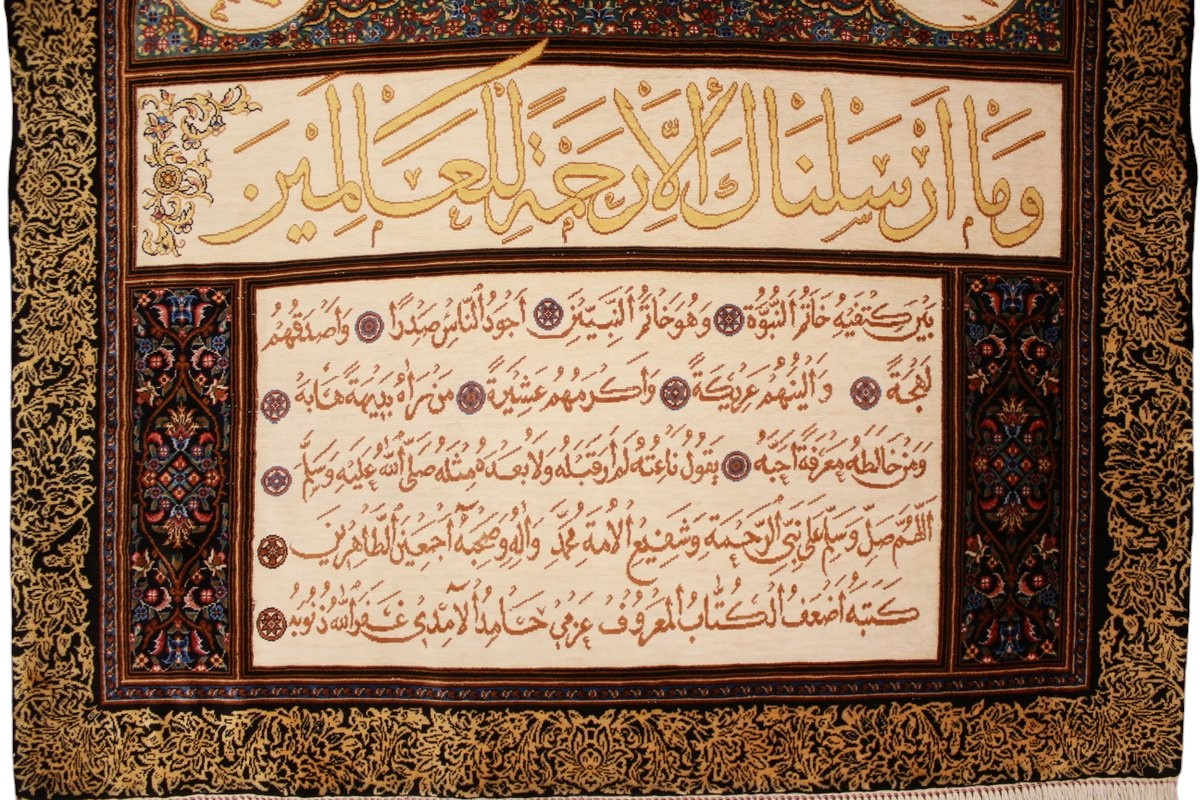 وَمَا أَرْسَلْنَاكَ إِلَّا رَحْمَةً لِلْعَالَمِينَ
بَيْنَ كَتِفَيْهِ خَاتَمُ النُّبُوَّةِ وَهُوَ خَاتَمُ النَّبِيِّينَ أَجْوَدُ النَّاسِ صَدْرًا وَأَصْدَقُهُمْ
لَهْجَةً وَأَلْيَنُهُمْ عَرِيكَةً وَأَكْرَمُهُمْ عَشِيرَةً مَنْ رَآهُ بَدِيهَةً هَابَهُ
وَمَنْ خَالَطَهُ مَعْرِفَةً أَحَبَّهُ يَقُولُ نَاعِتُهُ لَمْ أَرَ قَبْلَهُ وَلَا بَعْدَهُ مِثْلَهُ صَلَّى اللَّهُ عَلَيْهِ وَسَلَّمَ
اَللَّهُمَّ صَلِّ وَسَلِّمْ عَلَى نَبِيِّ الرَّحْمَةِ وَشَفِيعِ الْأُمَّةِ مُحَمَّدٍ وَآلِهِ وَصَحْبِهِ أَجْمَعِينَ الطَّاهِرِينَ
كَتَبَهُ أَضْعَفُ الْكُتَّابِ الْمَعْرُوفُ عَزْمِي حَامِدُ الْآمِدِيُّ غَفَرَ اللَّهُ ذُنُوبَهُ